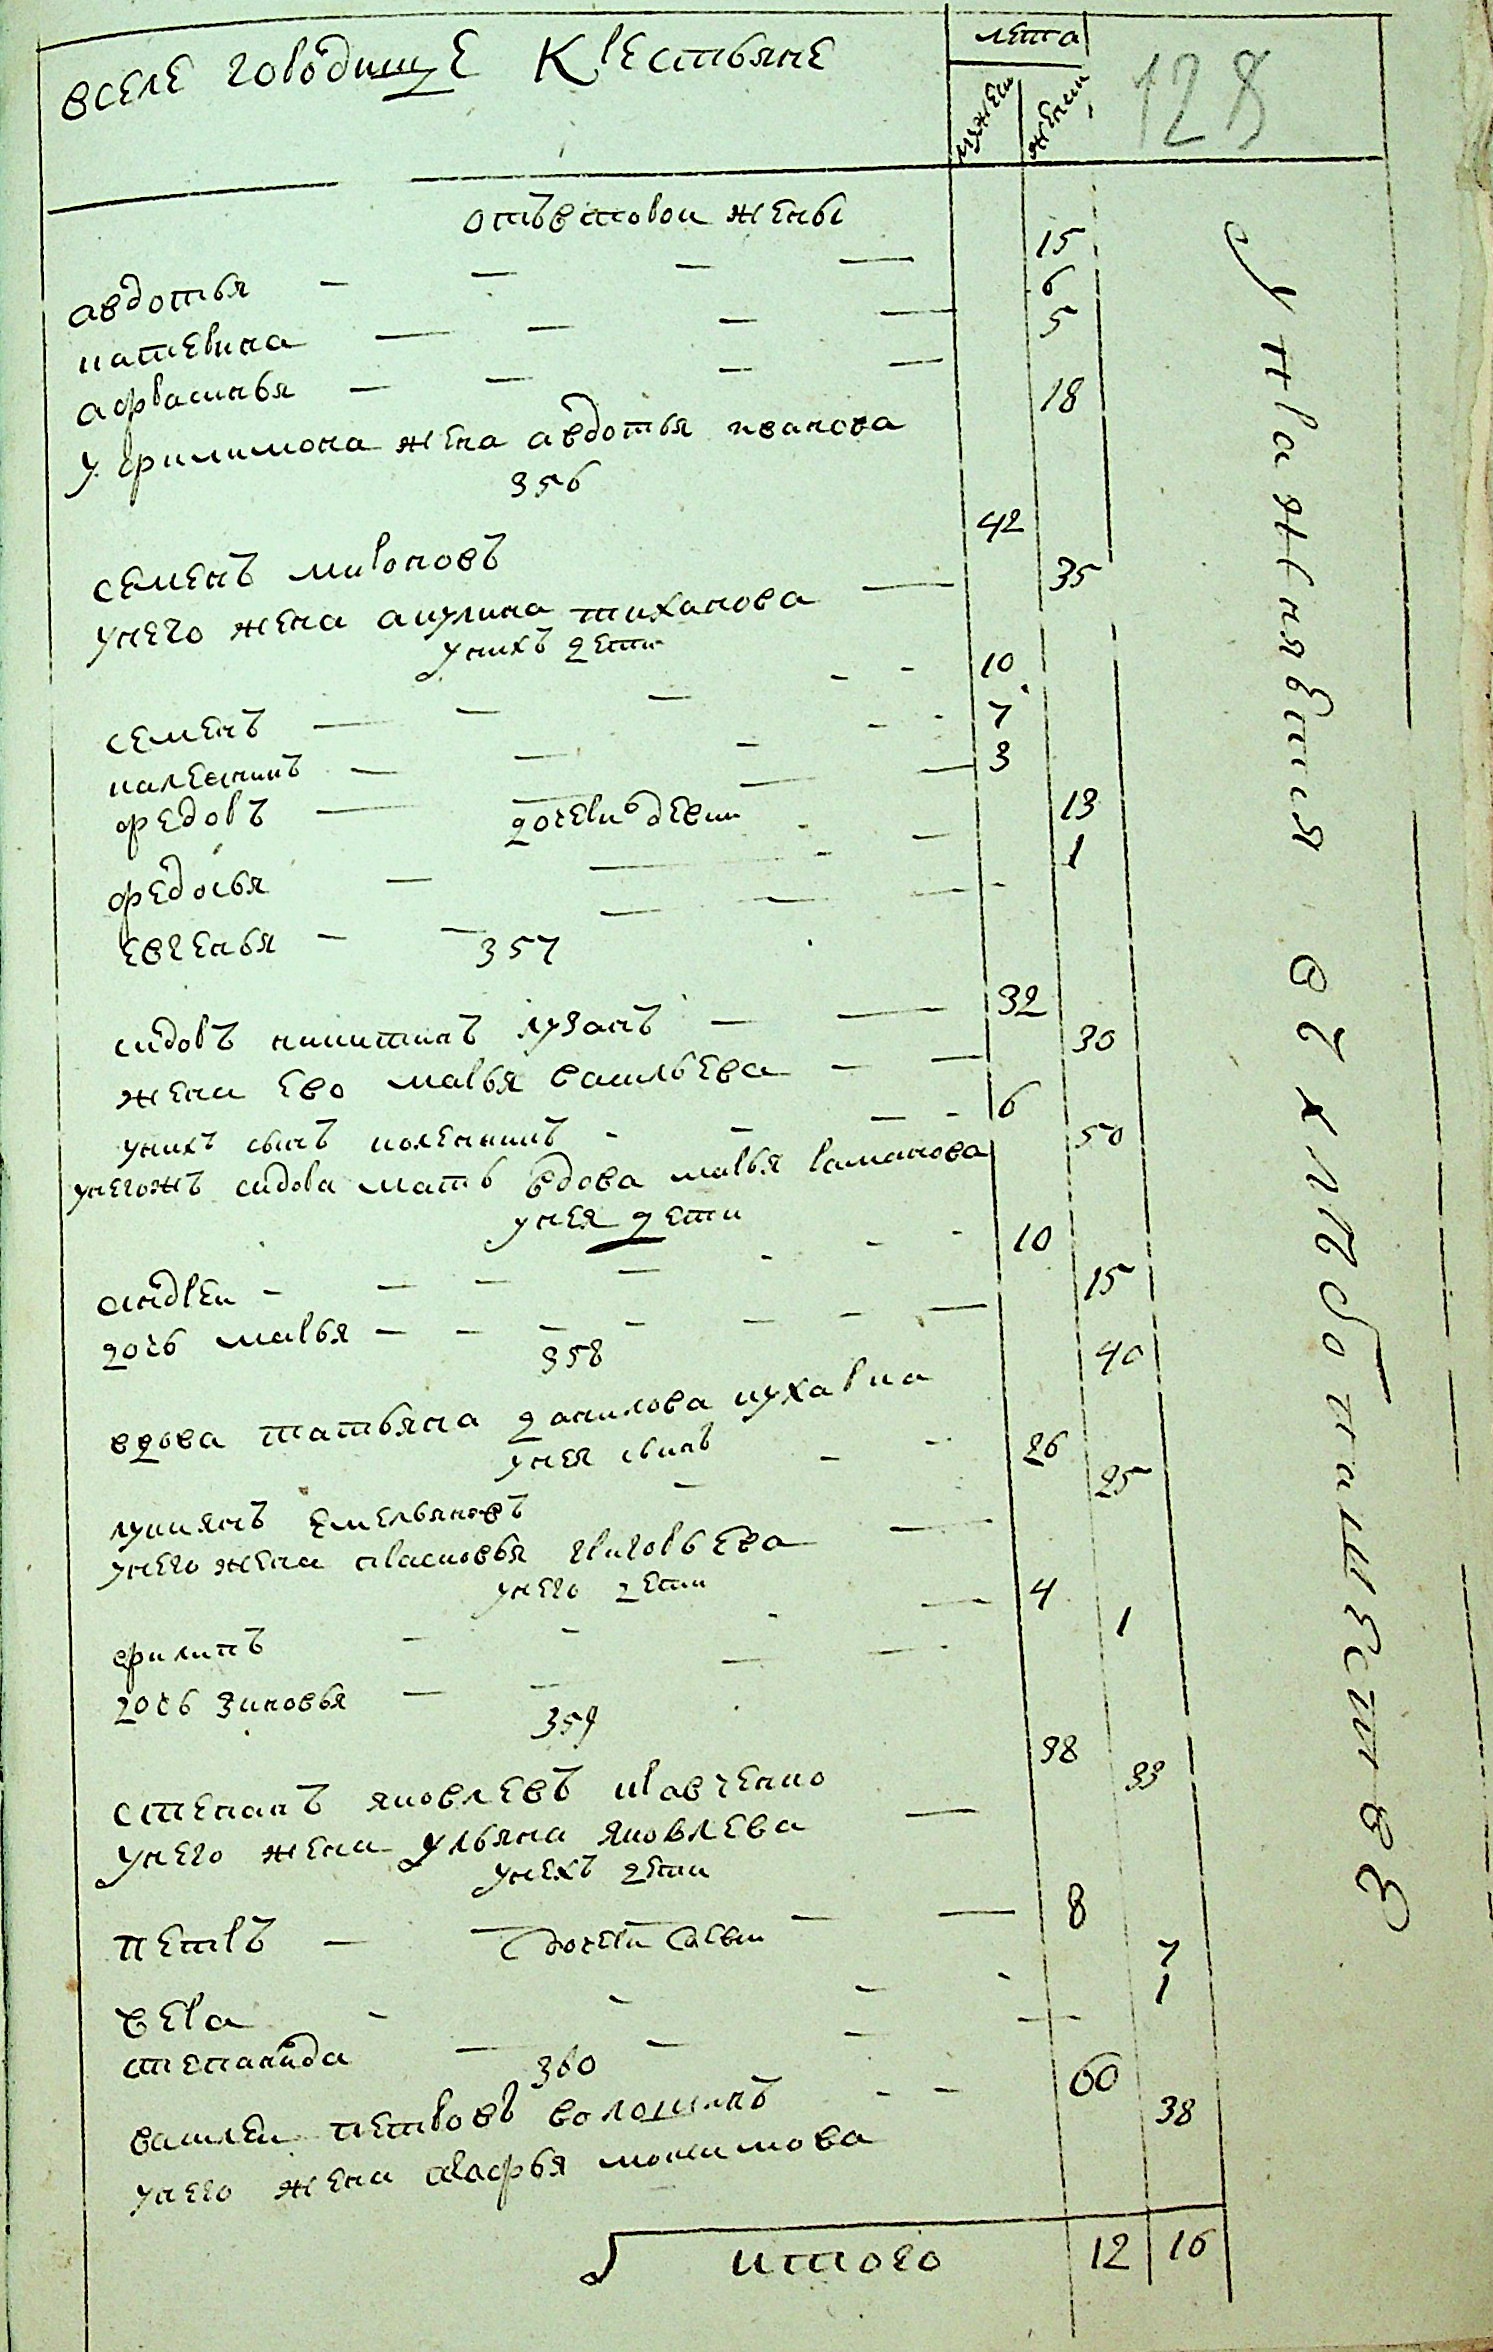 вселе городище крестьяне
лета
мужеск
женск
128
отъвторои жены
авдотья 15
катерина 6
афрасинья 5
у филимона жена авдотья иванова 18
356
семенъ мироновъ 42
унего жена акулина тиханова 35
унихъ дети
семенъ 10
каленикъ 7
федоръ 3
дочери девки
федосья 13
евгенья 1
357
сидоръ никитинъ лузанъ 32
жена ево марья васильева 30
унихъ сынъ каленикъ 6
унегожъ сидора мать вдова марья романова 50
унея дети
андреи 10
дочь марья 15
358
вдова татьяна данилова кухарка 40
унея сынъ
лукиянъ емельяновъ 26
унего жена прасковья григорьева 25
унего дети
филипъ 4
дочь зиновья 1
359
степанъ яковлевъ кравченко 38
унего жена ульяна яковлева 33
унехъ дети
петръ 8
дочери девки
вера 7
степанида 1
360
василеи петровъ волошинъ 60
унего жена агафья максимова 38
итого 12 16